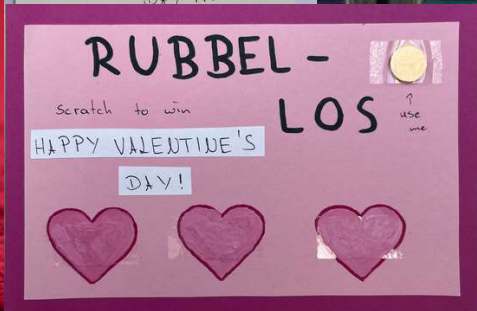 RUBBEL-
LOS
scratch to win
↑
use
me
HAPPY VALENTINE'S
DAY!